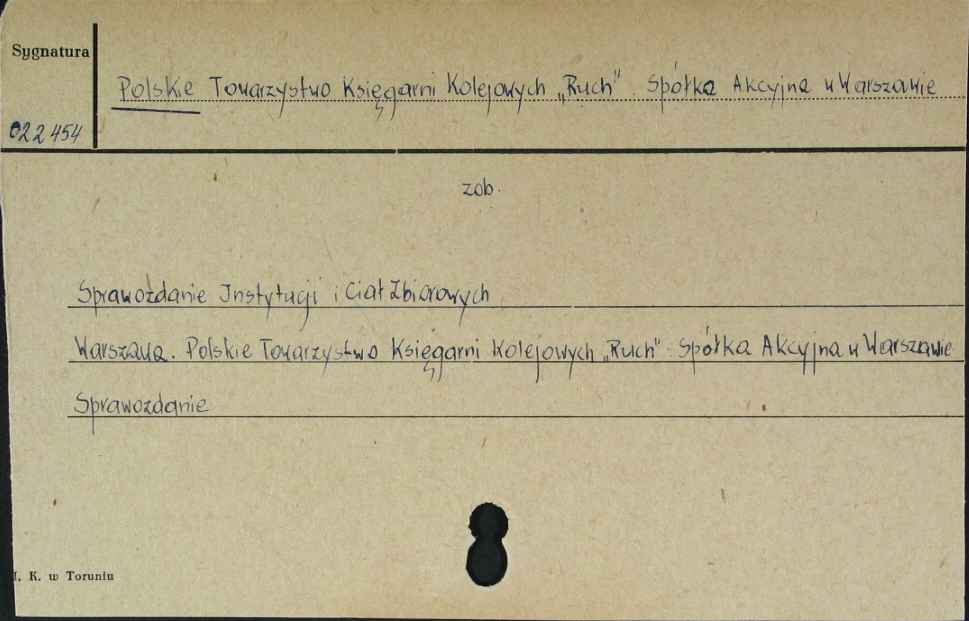 Sygnatura
Polskie Towarzystwo Księgarni Kolejowych „Ruch" Spółka Akcyjna w Warszawie
022454
zob.
Sprawozdanie Instytucji i Ciał Zbiorowych
Warszawa. Polskie Towarzystwo Księgarni Kolejowych „Ruch" Spółka Akcyjna w Warszawie
Sprawozdanie
I. K. w Toruniu